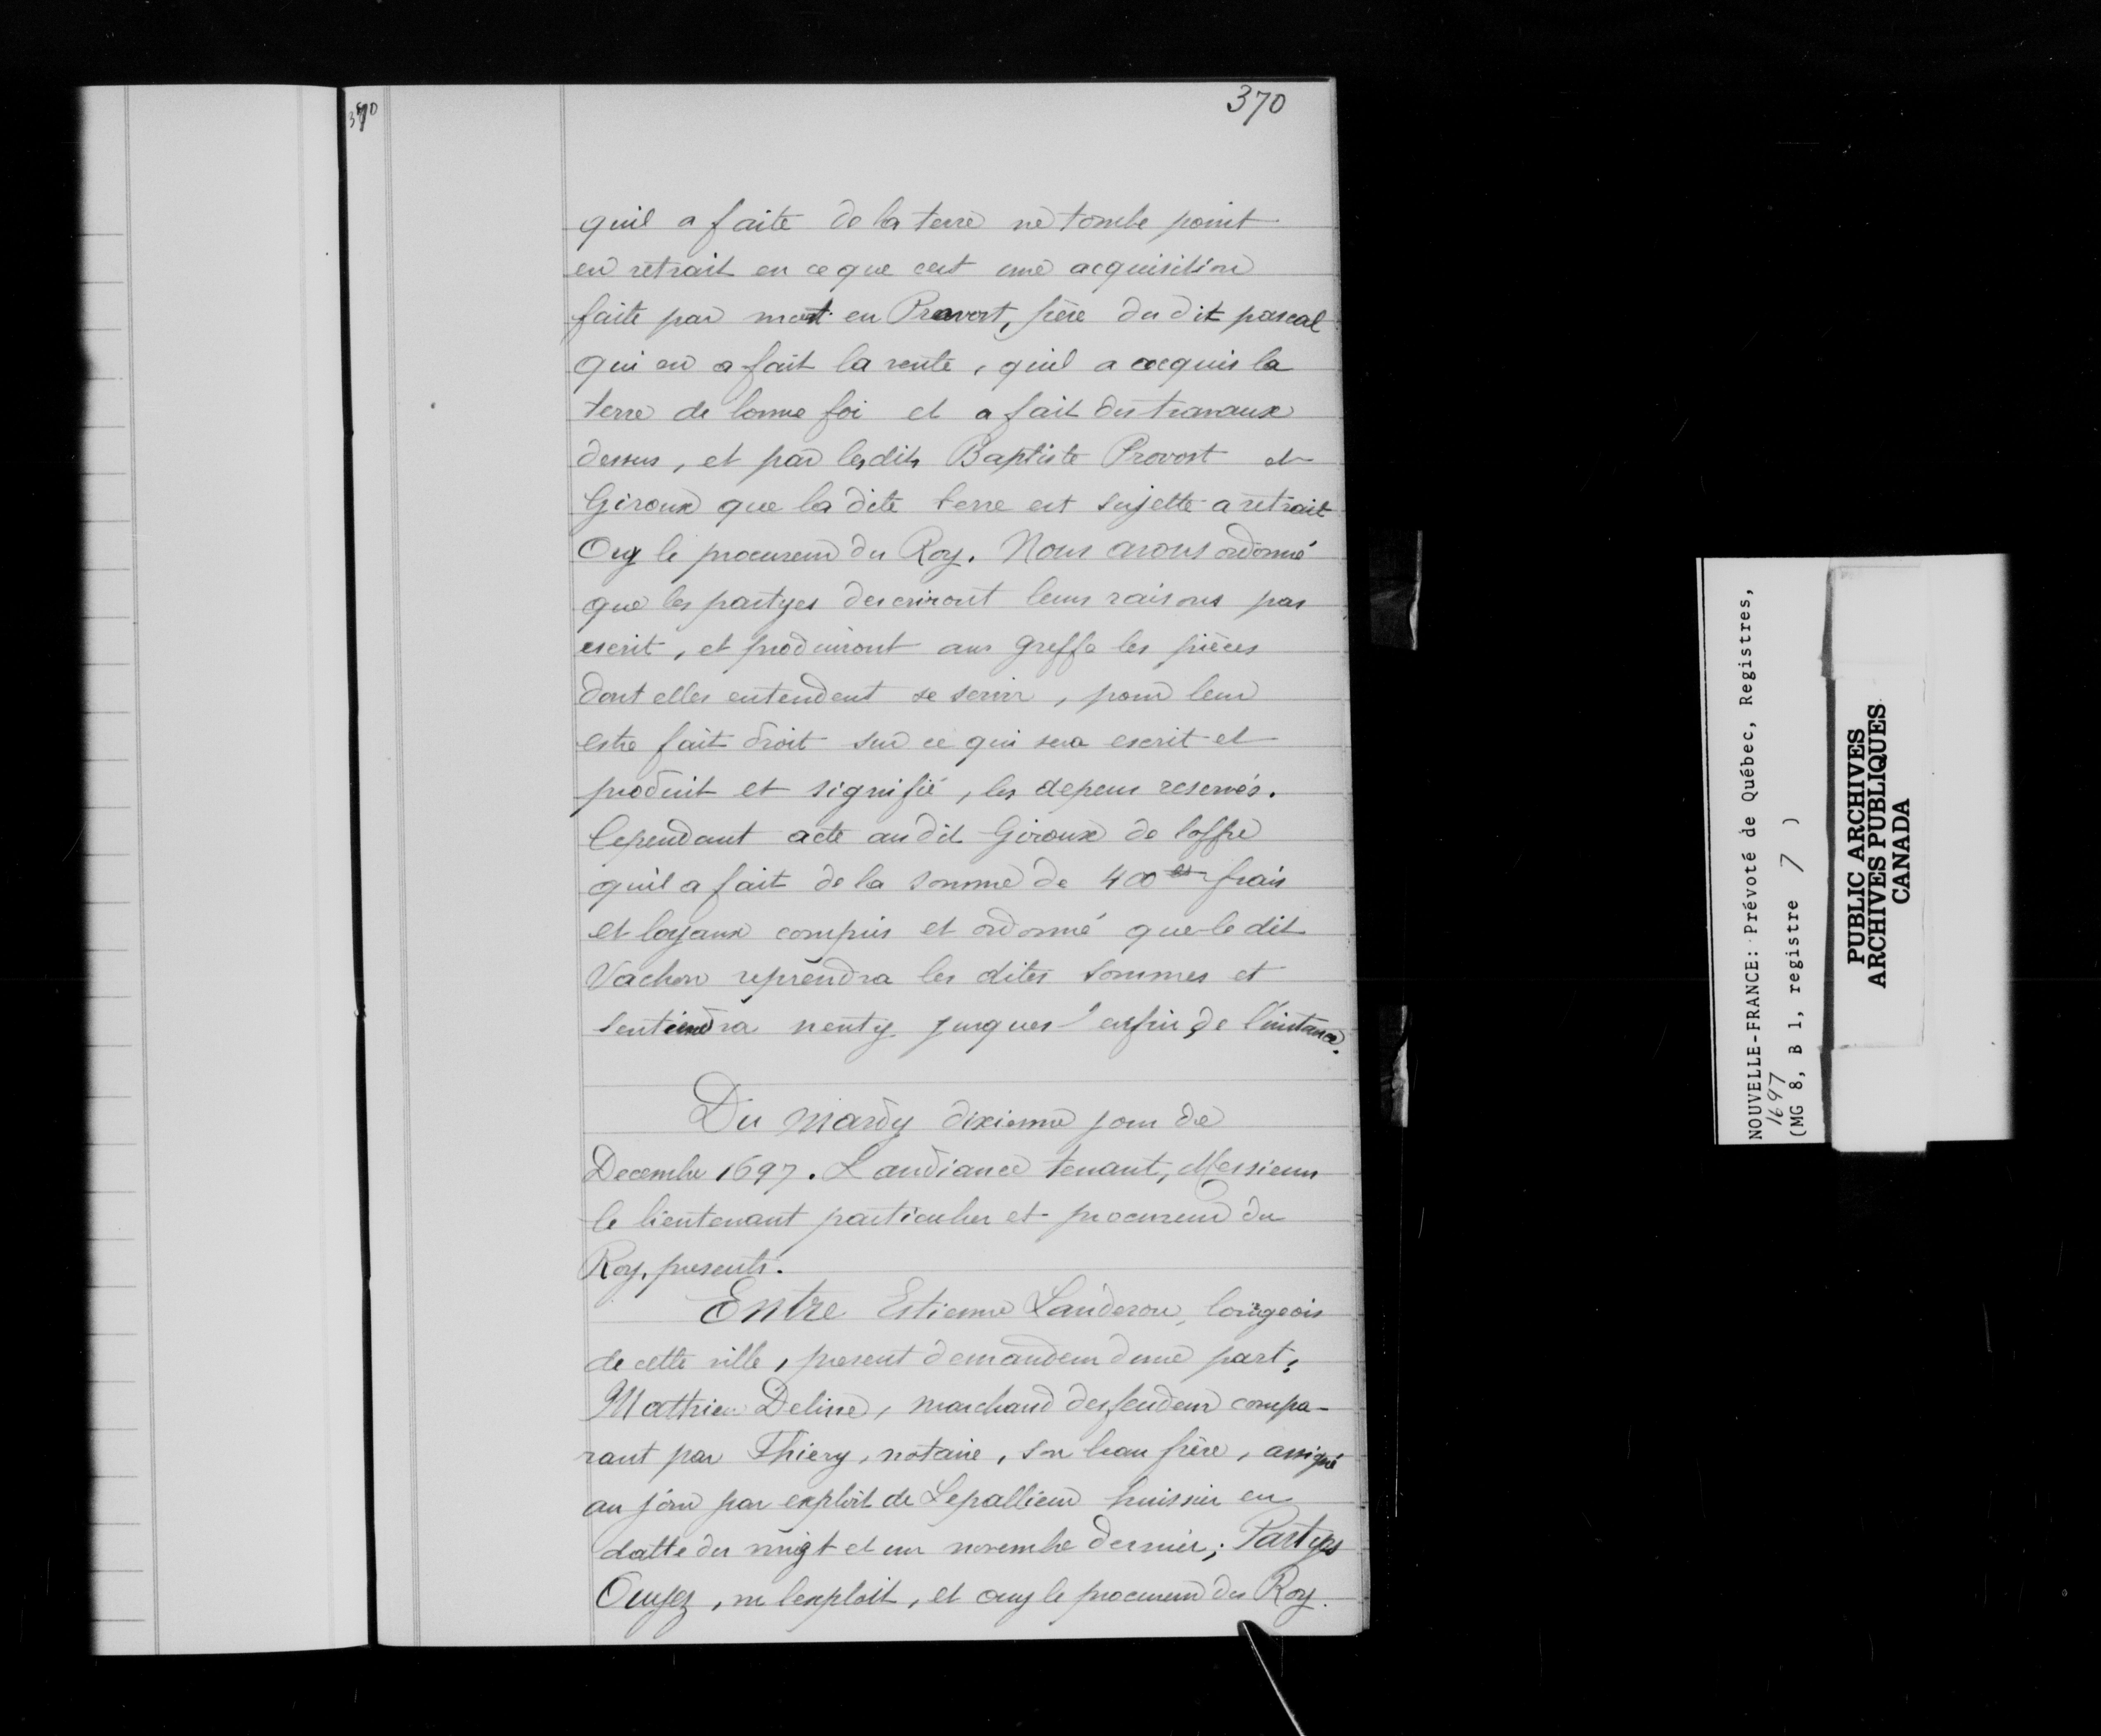 370
370
quil a faite de la terre ne tombe point
en retrait en ce que cest une acquisition
faite par mart. en Provost, père du dit pascal
qui en a fait la vente, quil a acquis la
terre de bonne foi et a fait des travaux
dessus, et par lesdits Baptiste Provost et
Giroux que la dite terre est sujette a retrait
Ouy le procureur du Roy. Nous avons ordonné
que les partyes descriront leurs raisons par
escrit, et produiront au greffe les pièces
dont elles entendent se servir, pour leur
estre fait droit sur ce qui sera escrit et
produit et signifié, les depens reservés.
Cependant acte audit Giroux de loffre
quil a fait de la somme de 400 frais
et loyaux compris et ordonné que le dit
Vachon reprendra les dites sommes et
sentiendra nenty jusques enfin de l'instance.
Du Mardy dixienne jour de
Decembre 1697. Laudiance tenant, Messieurs
le lieutenant particulier et procureur du
Roy, presents.
Entre Estienne Landeron, bourgeois
de cette ville, present demandeur dune part,
Mathieu Deline, marchand desfendeur compa-
rant par Thiery, notaire, son beau frère, assigné
au jour par exploit de Lepallieur huissier en
datte du vingt et un novembre dernier; Partyes
Ouyes, vu lexploit, et ouy le procureur du Roy.
NOUVELLE-FRANCE: Prévoté de Québec, Registres,
1697
(MG 8, B 1, registre 7 )
PUBLIC ARCHIVES
ARCHIVES PUBLIQUES
CANADA